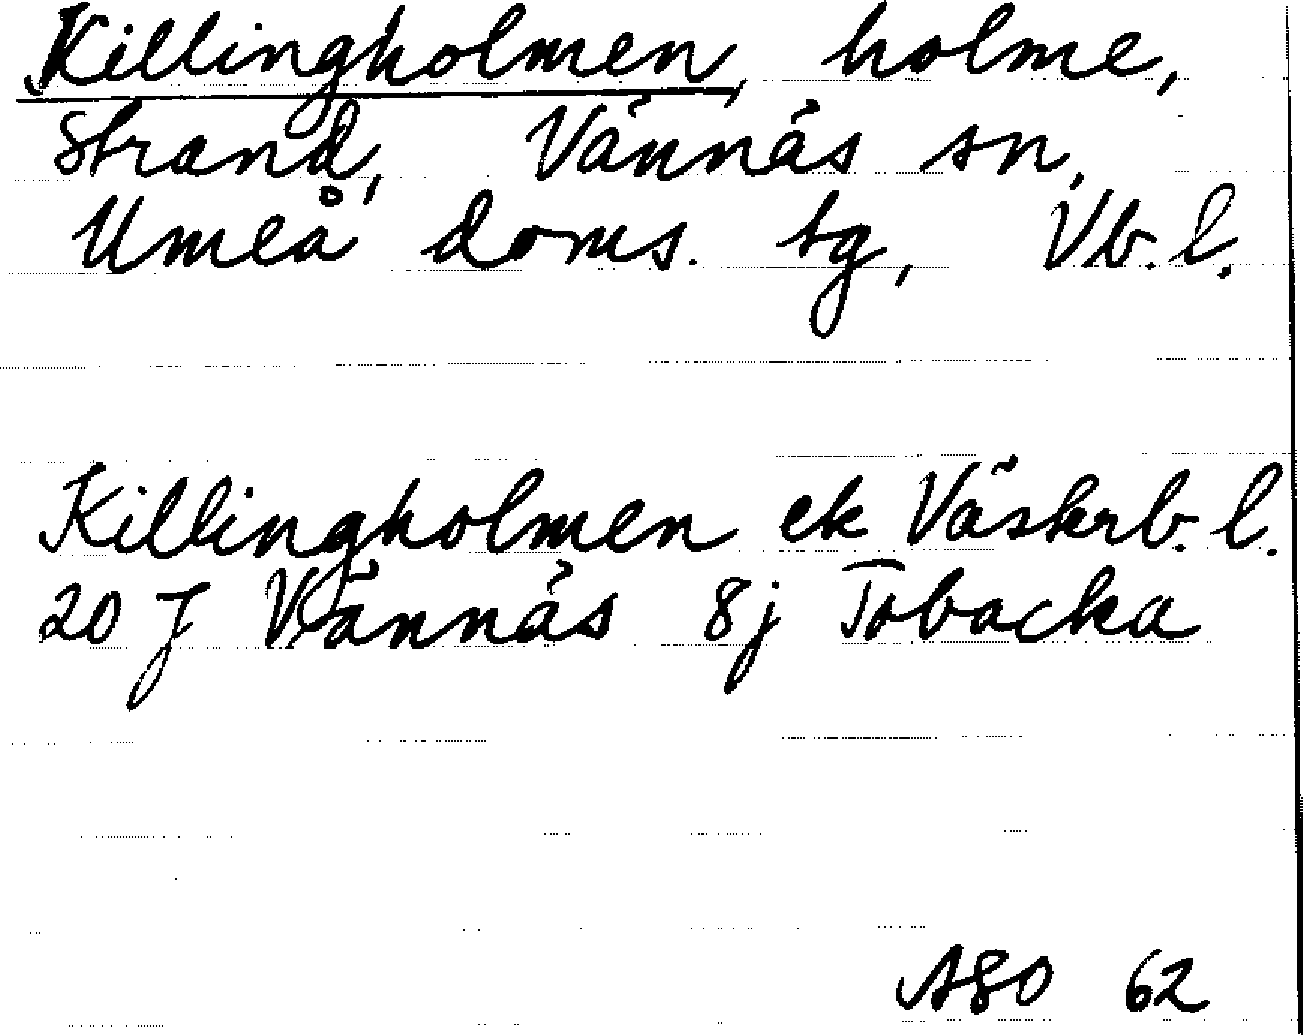 Killingholmen, holme,
Strand, Vännäs sn,
Umeå doms. tg, Vb. l.
Killingholmen ek Västerb. l.
20 J Vännäs 8j Tobacka
ASO 62